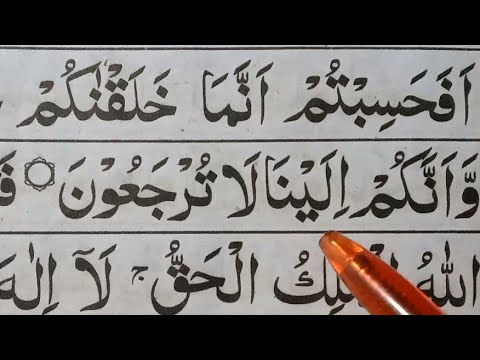 اَفَحَسِبْتُمْ اَنَّمَا خَلَقْنٰكُمْ
وَّاَنَّكُمْ اِلَيْنَا لَا تُرْجَعُوْنَ ۝ فَ
اللّٰهُ الْمَلِكُ الْحَقُّ ۚ لَاۤ اِلٰهَ